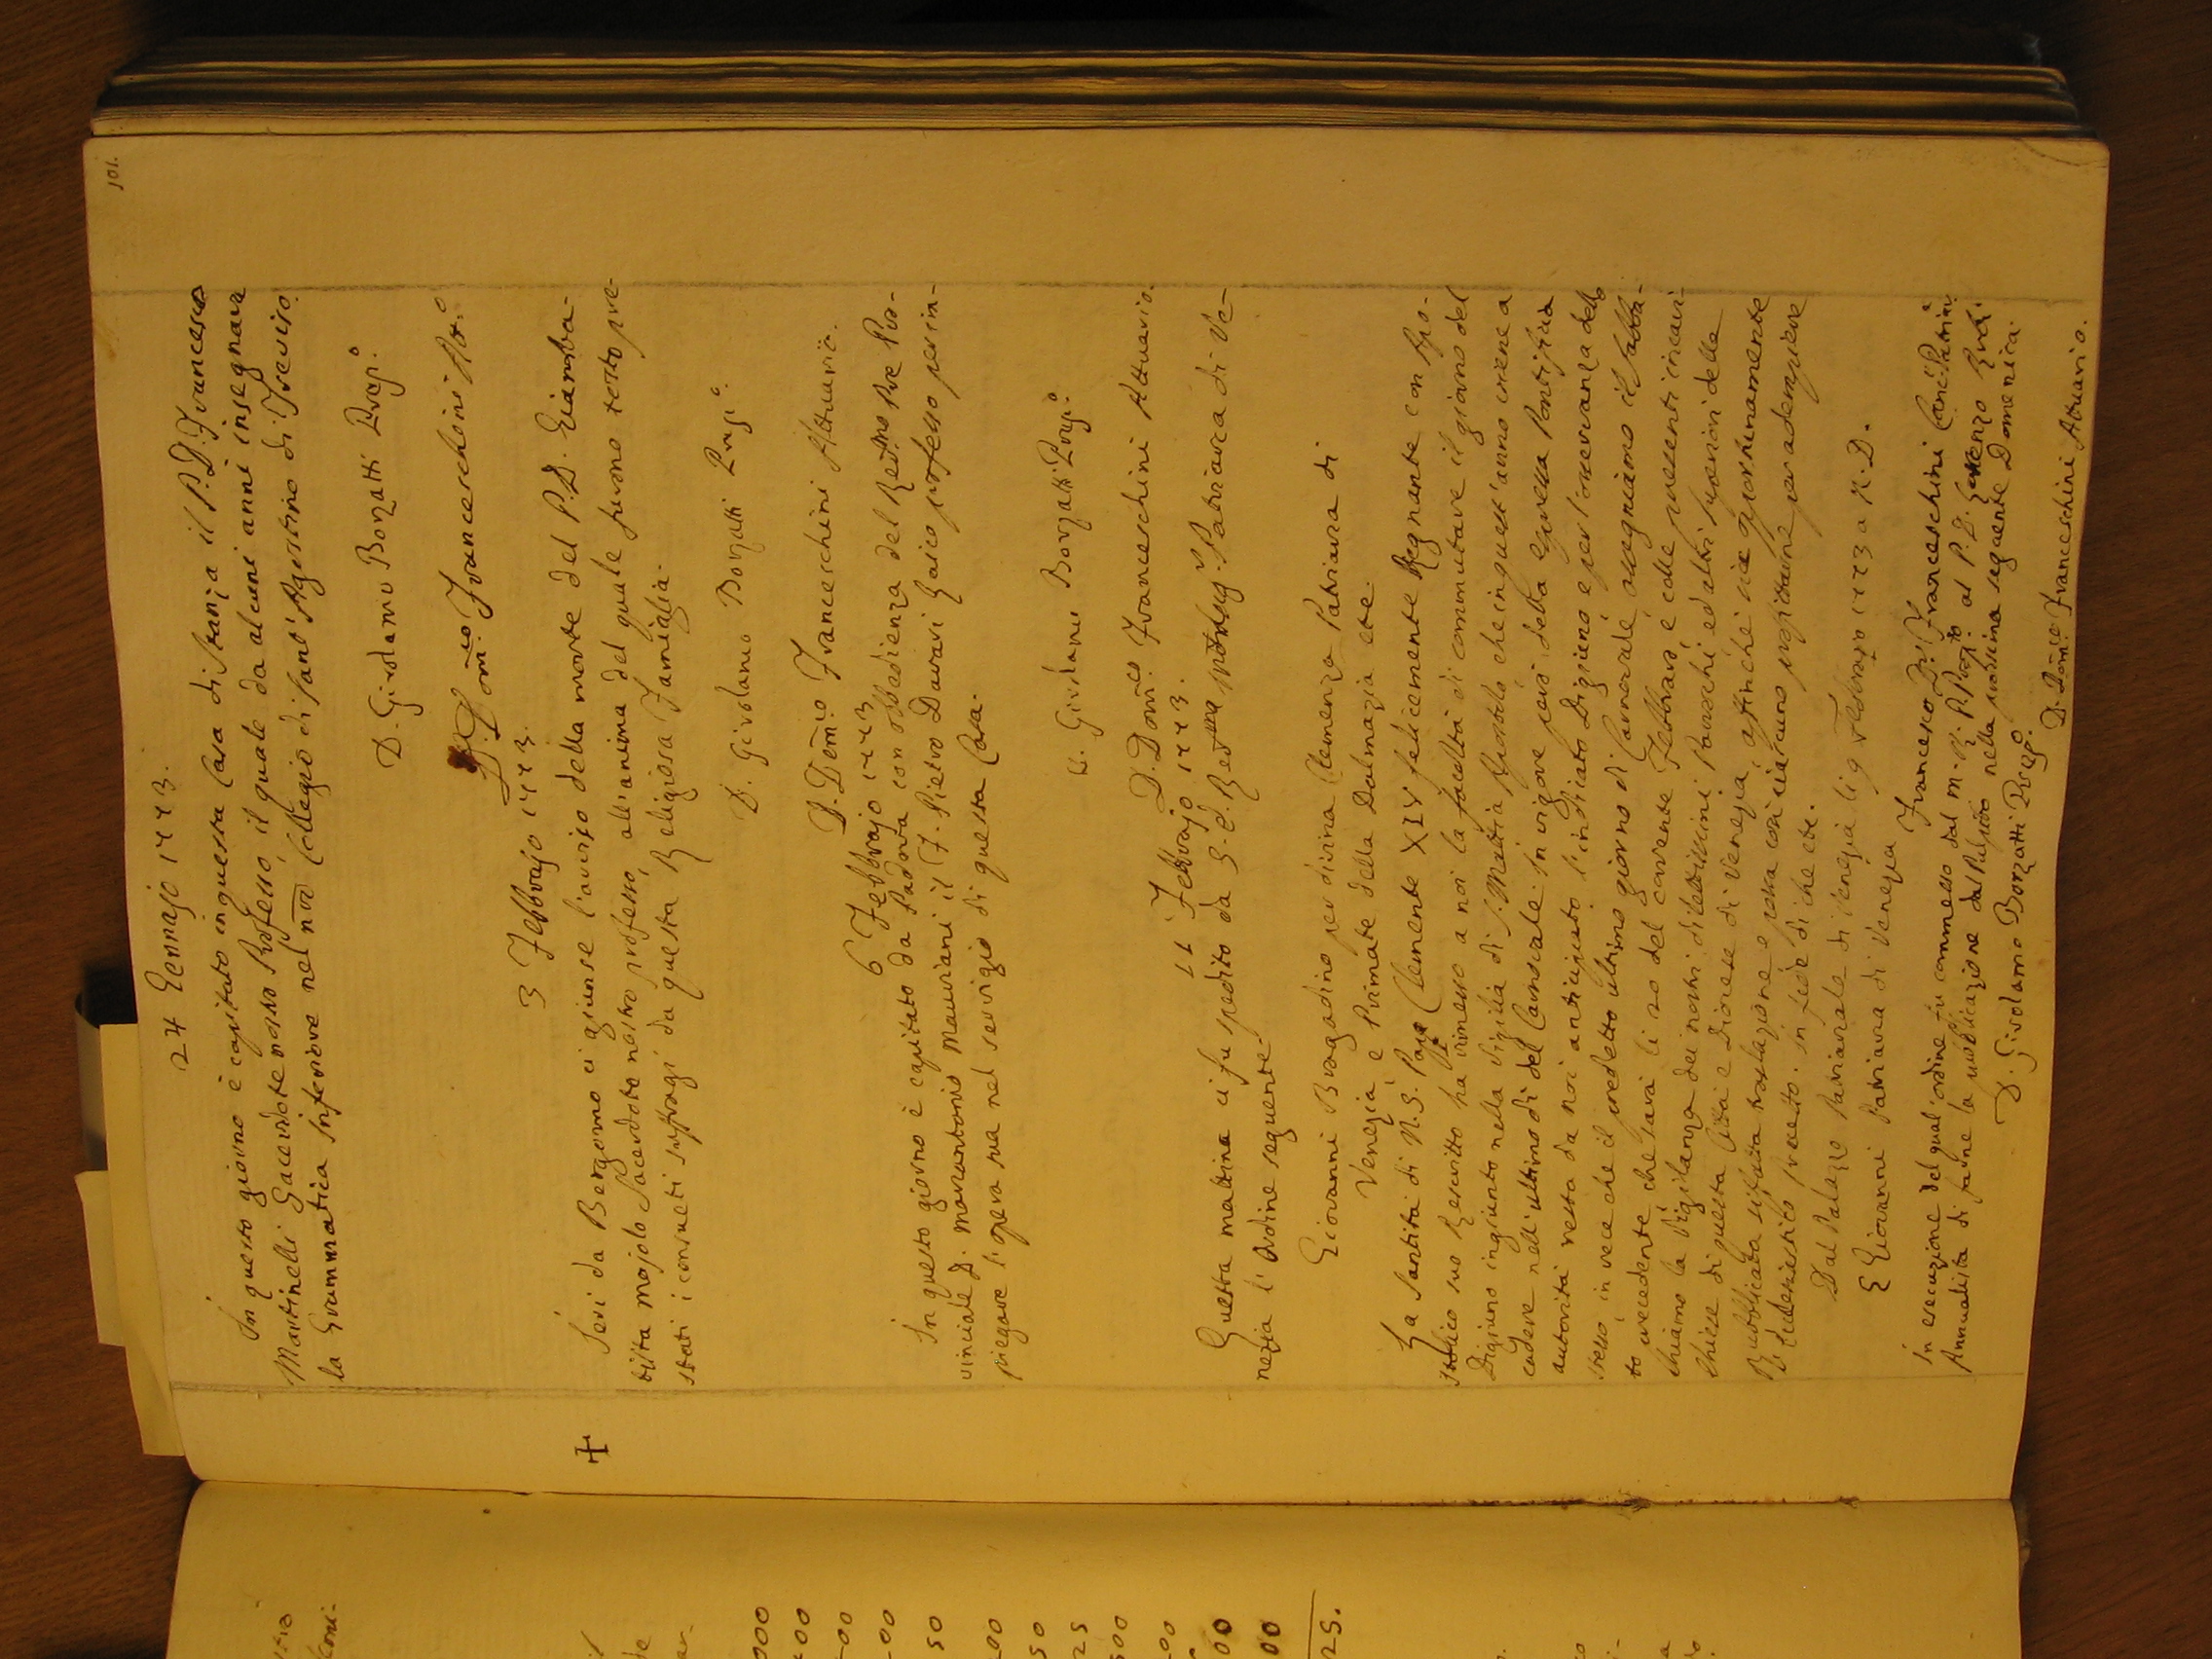 101.
24 Gennajo 1773.
In questo giorno è capitato in questa Casa di Stanza il P. D. Francesco
Martinelli Sacerdote nostro Professo, il quale da alcuni anni insegnava
la Grammatica inferiore nel nro Collegio di Sant' Agostino di Treviso.
D. Girolamo Bonzatti Prep.o
D. Dom.co Franceschini Att.o
3 Febbrajo 1773.
Jeri da Bergamo ci giunse l'avviso della morte del P. D. Giamba-
tista Mojolo Sacerdote nostro professo, all'anima del quale furono tosto pre-
stati i consueti suffragi da questa Religiosa Famiglia.
D. Girolamo Bonzatti Prep.o
D. Dom.co Franceschini Attuario.
6 Febbrajo 1773
In questo giorno è capitato da Padova con obbedienza del Red.mo Pre Pro-
vinciale D. Marcantonio Mauriani il F. Pietro Davavi Laico professo per im-
piegare l'opera sua nel servigio di questa Casa.
D. Girolamo Bonzatti Prep.o
D. Dom.co Franceschini Attuario.
11 Febbrajo 1773.
Questa mattina ci fu spedito da S. E. Red.ma Monsig. Patriarca di Ve-
nezia l'Ordine seguente
Giovanni Bragadino per divina Clemenza Patriarca di
Venezia, e Primate della Dalmazia etc.
La Santità di N. S. Papa Clemente XIV felicemente Regnante con Apo-
stolico suo Rescritto ha rimesso a noi la facoltà di commutare il giorno del
Digiuno ingiunto nella Vigilia di S. Mattia Apostolo che in quest'anno viene a
cadere nell'ultimo dì del Carnovale. In vigore però della stessa Pontificia
autorità resta da noi anticipato l'indicato Digiuno e per l'osservanza dello
stesso, in vece che il predetto ultimo giorno di Carnovale, assegniamo il Sabba-
to precedente che sarà li 20 del corrente Febbraro, e colle presenti incari-
chiamo la Vigilanza dei nostri dilettissimi Parrochi ed altri Superiori delle
Chiese di questa Città e Diocese di Venezia, affinchè sia opportunamente
Pubblicata siffatta traslazione, e possa così ciascuno profittarne per adempiere
l'Ecclesiastico precetto. In fede di che etc.
Dal Palazzo Patriarcale di Venezia li 9 Febraro 1773 a N. D.
Giovanni Patriarca di Venezia
Francesco D.r Franceschini Canc. Patriar.
In esecuzione del qual'ordine fu commesso dal m. R. P. Prep.to al P. D. Lorenzo
Annalista di farne la pubblicazione dal Pulpito nella prossima seguente Domenica.
D. Girolamo Bonzatti Prep.o
D. Dom.co Franceschini Attuario.
25.